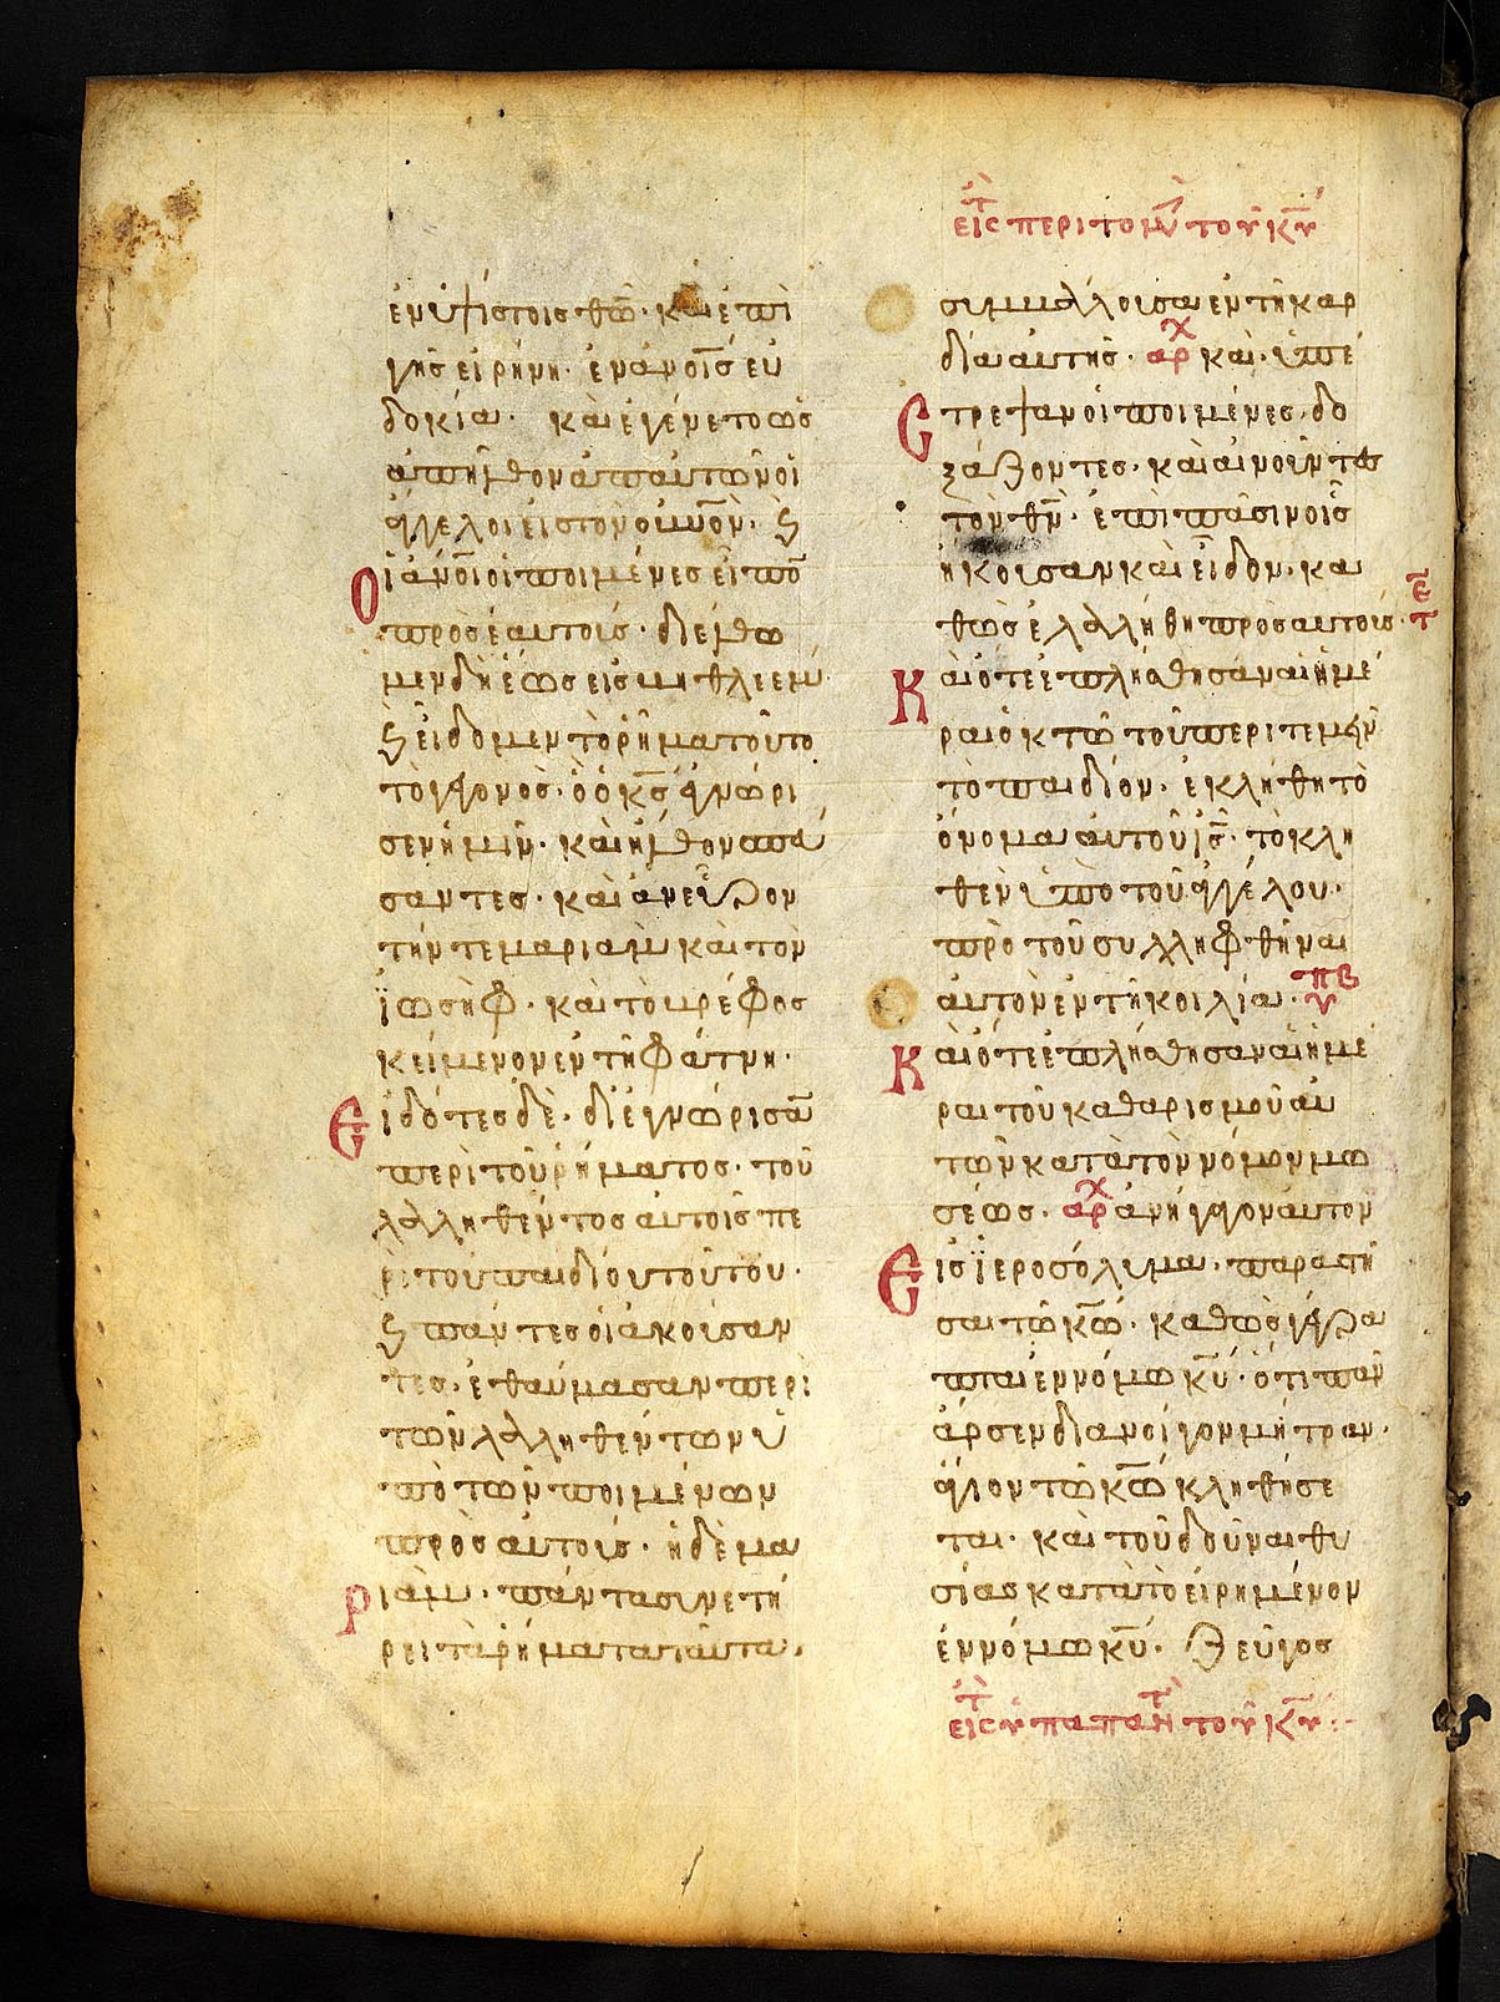 ἐν ὑψίστοις θω̅· και ἐπὶ
γῆς εἰρήνη· ἐν ἀνο̅ις εὐ
δοκία· και ἐγένετο ὡς
ἀπῆλθον ἀπ αυτῶν οἱ
ἄγγελοι εἰς τὸν οὐνο̅ν· ϗ
οἱ ἀνο̅ι οἱ ποιμένες εἶπο̅
πρὸς ἑαυτούς· διέλθω
μεν δὴ ἕως εἰς βηθλεεμ
ϗ εἴδομεν τὸ ρῆμα τοῦτο
τὸ γεγονὸς· ὃ ὁ κ̅ς ἐγνώρι
σεν ἡμῖν· και ἦλθον σπεύ
σαντες· καὶ ἀνεῦρον
τήν τε μαριὰμ καὶ τὸν
ἰωσὴφ· καὶ τὸ βρέφος
κείμενον ἐν τῆ φάτνη·
Εἰδότες δὲ· διεγνώρισα̅
περὶ τοῦ ρήματος· τοῦ
λαληθέντος αὐτοῖς πε
ρὶ τοῦ παιδίου τούτου·
ϗ πάντες οἱ ἀκούσαν
τες· ἐθαύμασαν περὶ
τῶν λαληθέντων ὑ
πὸ τῶν ποιμένων
πρὸς αὐτούς· ἡ δὲ μα
ριὰμ· πάντα συνετή
ρει τὰ ρήματα ταῦτα·
εις τ̅ περιτομ̅ τοῦ κ̅υ
συμβάλλουσα ἐν τῆ καρ
δία αυτῆς· αρχ και· ὑπέ
Στρεψαν οἱ ποιμένες· δο
ξάζοντες· καὶ αἰνοῦντες
τὸν θ̅ν· ἐπὶ πᾶσιν οἷς
ἤκουσαν καὶ εἶδον· κα
θὼς ἐλαλήθη πρὸς αυτούς· τε̅
Και ὅτε ἐπλήσθησαν αἱ ἡμέ
ραι ὀκτὼ τοῦ περιτεμεῖν
τὸ παιδίον· ἐκλήθη τὸ
ὄνομα αὐτοῦ ι̅ς· τὸ κλη
θὲν ὑπὸ τοῦ ἀγγέλου·
πρὸ τοῦ συλληφθῆναι
αὐτὸν ἐν τῆ κοιλία· πβ υ
Καὶ ὅτε ἐπλήσθησαν αἱ ἡμέ
ραι τοῦ καθαρισμοῦ αὐ
τῶν κατὰ τὸν νόμον μω
σέως· αρχ ἀνήγαγον αὐτὸν
Εἰς ἱεροσόλυμα· παραστῆ
σαι τῶ κ̅ω· καθὼς γέγρα
πται ἐν νόμω κ̅υ· ὅτι πᾶν
ἄρσεν διανοίγον μήτραν·
ἅγιον τῶ κ̅ω κληθήσε
ται· καὶ τοῦ δοῦναι θυ
σίαν κατὰ τὸ εἰρημένον
ἐν νόμω κ̅υ· ζεῦγος
εις τ̅ ὑπαπαντ̅ τοῦ κ̅υ